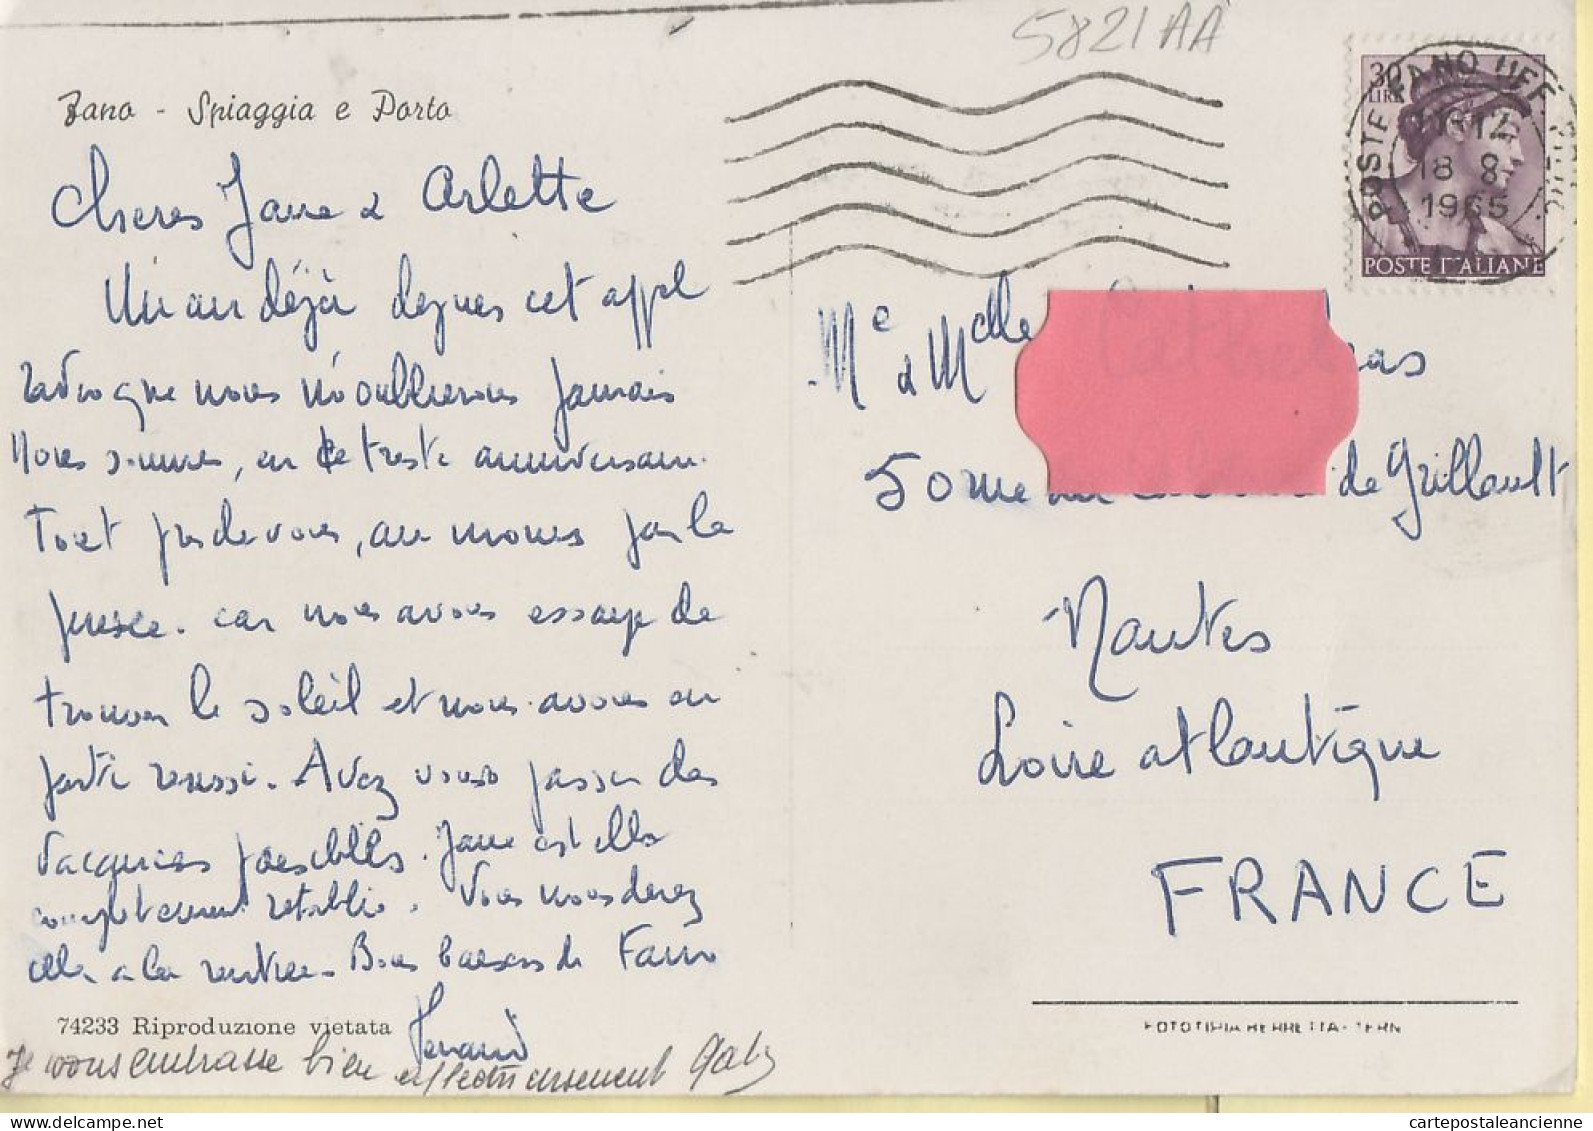 5821AA
Fano - Spiaggia e Porto
30
LIRE
POSTE FANO UFF
18 8
1965
POSTE ITALIANE
Chères Jane & Arlette
Un an déjà depuis cet appel
radio que nous n'oublierons jamais
Nous sommes, en ce triste anniversaire
Tout près de vous, au moins par la
pensée. car nous avons essayé de
trouver le soleil et nous avons en
partie réussi. Avez vous passer des
vacances paisibles. Jane est elle
complètement rétablie. Vous nous direz
cela à la rentrée. Bons baisers de Fano
Je vous embrasse bien affectueusement Gaby
Me & Melle
50 de Grillault
Nantes
Loire atlantique
FRANCE
74233 Riproduzione vietata
FOTOTIPIA BERRETTA - TERNI
cartepostaleancienne